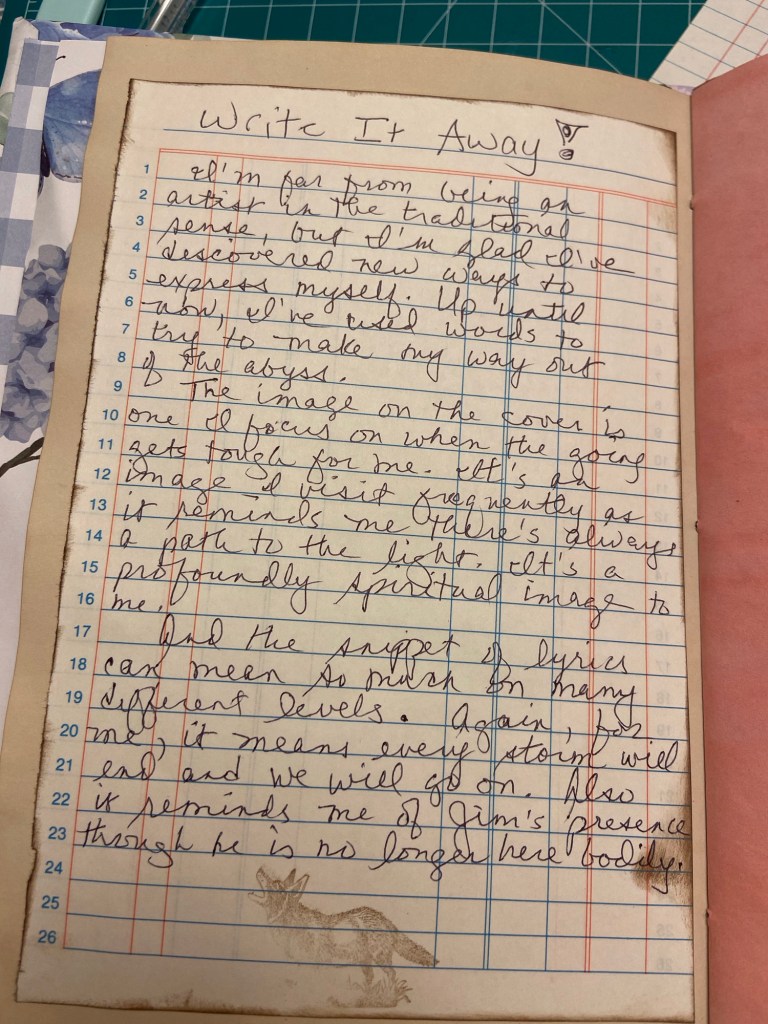 Write It Away!
1 I'm far from being an
2 artist in the traditional
3 sense, but I'm glad I've
4 discovered new ways to
5 express myself. Up until
6 now, I've used words to
7 try to make my way out
8 of the abyss.
9 The image on the cover is
10 one I focus on when the going
11 gets tough for me. It's an
12 image I visit frequently as
13 it reminds me there's always
14 a path to the light. It's a
15 profoundly spiritual image to
16 me.
17 And the snippet of lyrics
18 can mean so much on many
19 different levels. Again, for
20 me, it means every storm will
21 end and we will go on. Also
22 it reminds me of Jim's presence
23 through he is no longer here bodily.
24
25
26